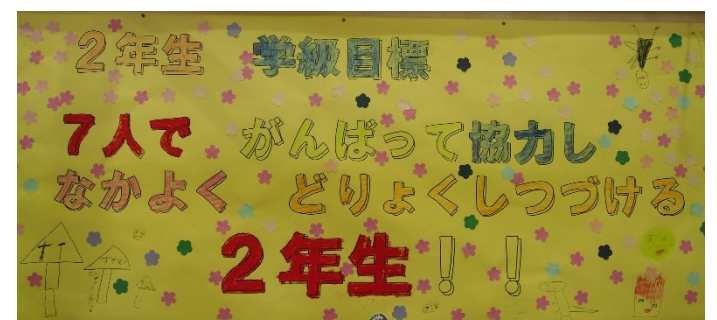 2年生 学級目標
7人で がんばって協力し
なかよく どりょくしつづける
2年生!!